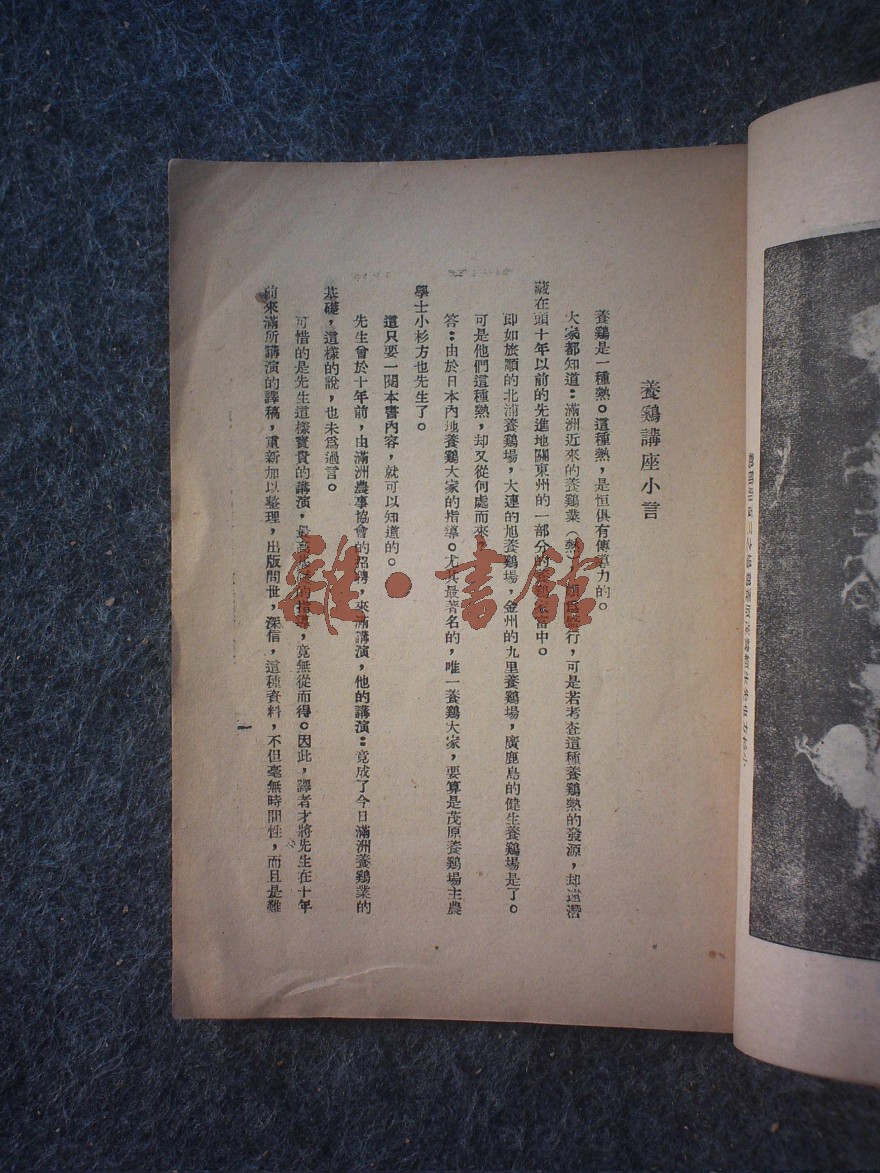 養鷄講座小言
養鷄是一種熱。這種熱，是恒俱有傳導力的。
大家都知道：滿洲近來的養鷄業（熱）頗爲盛行，可是若考查這種養鷄熱的發源，却遠潛
藏在頭十年以前的先進地關東州的一部分的養鷄家當中。
即如旅順的北浦養鷄場，大連的旭養鷄場，金州的九里養鷄場，廣鹿島的健生養鷄場是了。
可是他們這種熱，却又從何處而來？
答：由於日本內地養鷄大家的指導。尤其最著名的，唯一養鷄大家，要算是茂原養鷄場主農
學士小杉方也先生了。
這只要一閱本書內容，就可以知道的。
先生曾於十年前，由滿洲農事協會的招聘，來滿講演，他的講演：竟成了今日滿洲養鷄業的
基礎，這樣的說，也未爲過言。
可惜的是先生這樣寶貴的講演，最高的指導，竟無從而得。因此，譯者才將先生在十年
前來滿所講演的譯稿，重新加以整理，出版問世，深信，這種資料，不但毫無時間性，而且是難
一
雜·書館